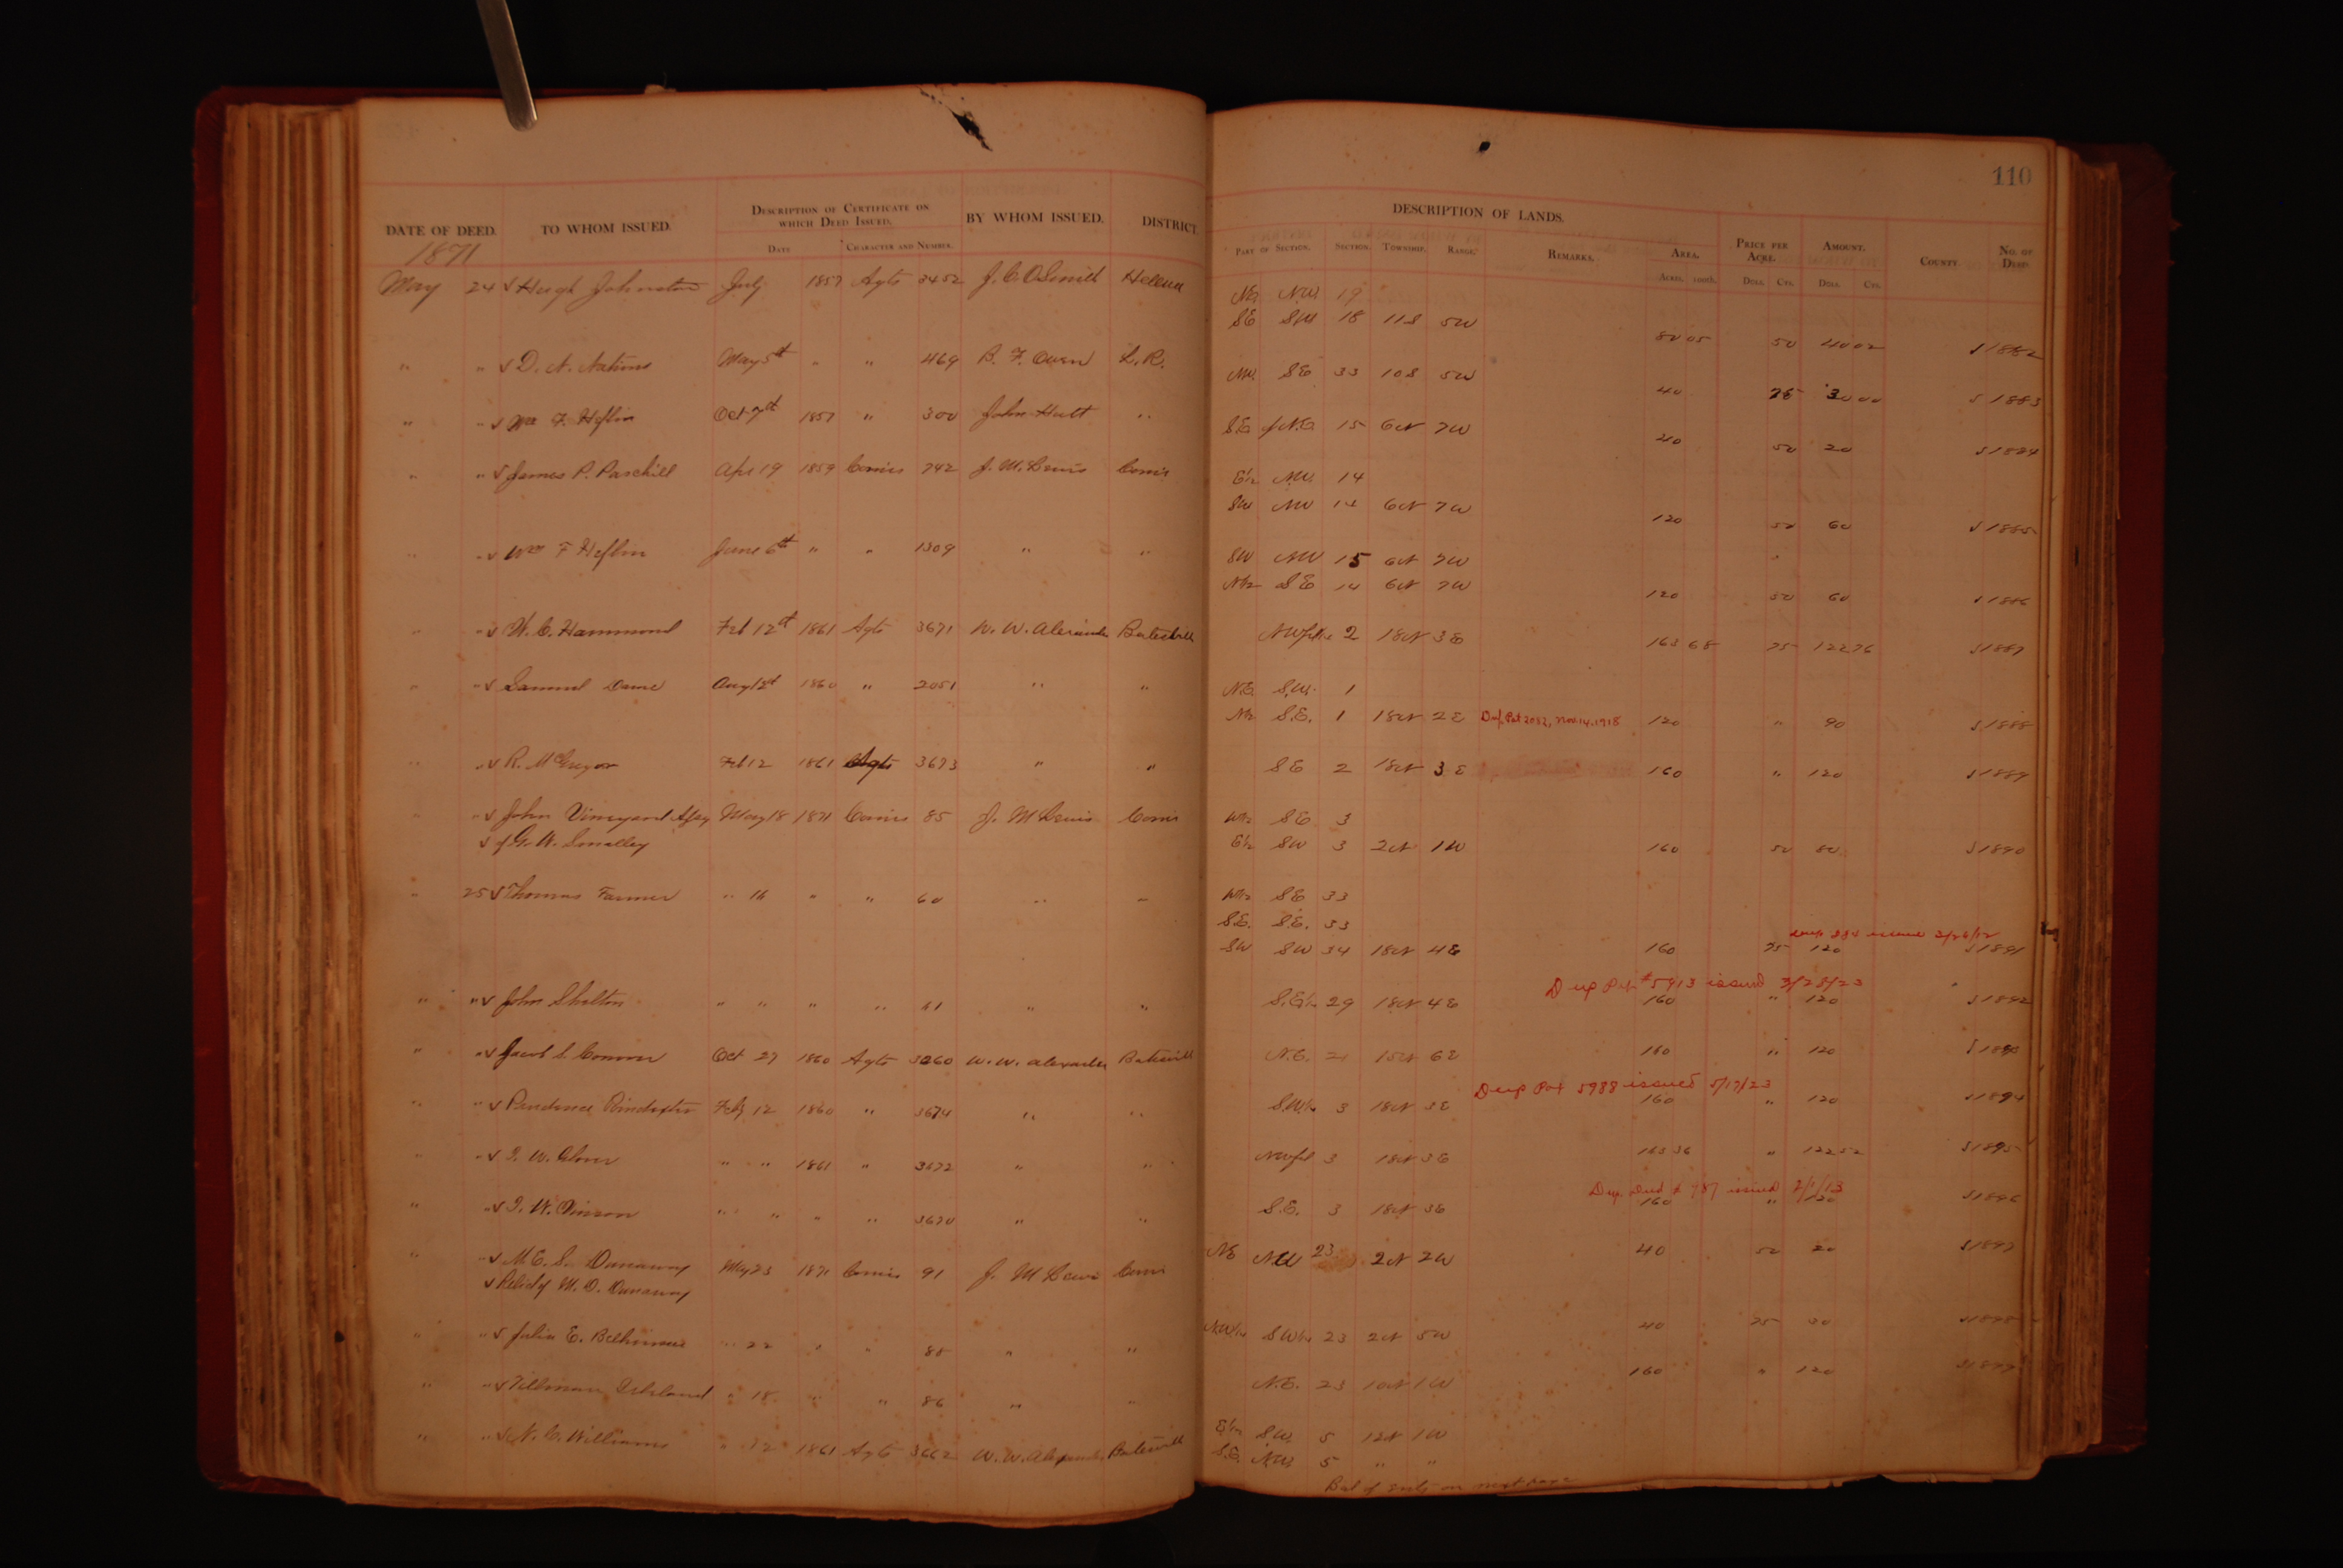 110
DESCRIPTION OF CERTIFICATE ON WHICH DEED ISSUED.
DESCRIPTION OF LANDS.
DATE OF DEED. TO WHOM ISSUED. DATE CHARACTER AND NUMBER. BY WHOM ISSUED. DISTRICT. PART OF SECTION. SECTION. TOWNSHIP. RANGE. REMARKS. AREA. PRICE PER ACRE. AMOUNT. COUNTY NO. OF DEED.
ACRES 100th. DOLL CTS. DOLL CTS.
1871
May 24 Hugh Johnston July 1857 Agts 3452 J. C. O Smith Helena NE NW 19
SE SW 18 11S 5W 80 05 50 40 02 1882
" " D. N. Nations May 5th " " 469 B. F. Owen L.R. NW SE 33 10S 5W 40 75 30 00 1883
" " Wm F. Heflin Oct 7th 1857 " 300 John Hutt " SE of NE 15 6N 7W 40 50 20 1884
" " James P. Paschill Apr 19 1859 Comis 742 J. M. Lewis Comis E½ NW 14
SW NW 14 6N 7W 120 50 60 1885
" " Wm F Heflin June 6th " " 1309 " " SW NW 15 6N 7W
N½ SE 14 6N 7W 120 50 60 1886
" " W. C. Hammond Feb 12th 1861 Agts 3671 W. W. Alexander Batesville NW 2 18N 3E 163 68 75 122 76 1887
" " Samuel Dame Aug 12th 1860 " 2051 " " N.E. S.W. 1
N½ S.E. 1 18N 2E Dup. Pat 2082, Nov. 14, 1918 120 " 90 1888
" " R. McGregor Feb 12 1861 Agts 3673 " " SE 2 18N 3E 160 " 120 1889
" " John Vineyard Asse May 18 1871 Comis 85 J. M Lewis Comis W½ SE 3
of G. W. Smalley E½ SW 3 2N 1W 160 50 80 1890
" 25 Thomas Farmer " 16 " " 60 " " W½ SE 33
S.E. S.E. 33
issued 2/26/12
SW SW 34 18N 4E 160 75 120 1891
Dup Pat #5913 issued 3/28/23
" " John Shelton " " " " 61 " " S.E¼ 29 18N 4E 160 " 120 1892
" " Jacob S. Conner Oct 27 1860 Agts 3060 W. W. Alexander Batesville N.E. 21 15N 6E 160 " 120
Dup Pat 5988 issued 5/17/23
" " Prudence Poindexter Feby 12 1860 " 3674 " " S.W¼ 3 18N 3E 160 " 120 1894
" " W. Glover " " 1861 " 3672 " " NW 3 18N 3E 163 36 " 122 52 1895
Dup Deed # 787 issued 2/1/13
" " W. Vinson " " " " 3670 " " S.E. 3 18N 3E 160 " 120 1896
" " M. E. S. Dunaway May 23 1871 Comis 91 J. M Lewis Comis NE NW 23 2N 2W 40 50 20 1897
Relict of M. D. Dunaway
" " Julia E. " 22 " " 88 " " NW¼ SW¼ 23 2N 5W 40 75 30 1898
" " Tillman " 18 " " 86 " " N.E. 23 10N 1W 160 " 120 1899
" " N. C. Williams " 12 1861 Agts 3662 W. W. Alexander Batesville E½ S.W. 5 12N 1W
S.E. N.W. 5 " "
Bal of entry on next page